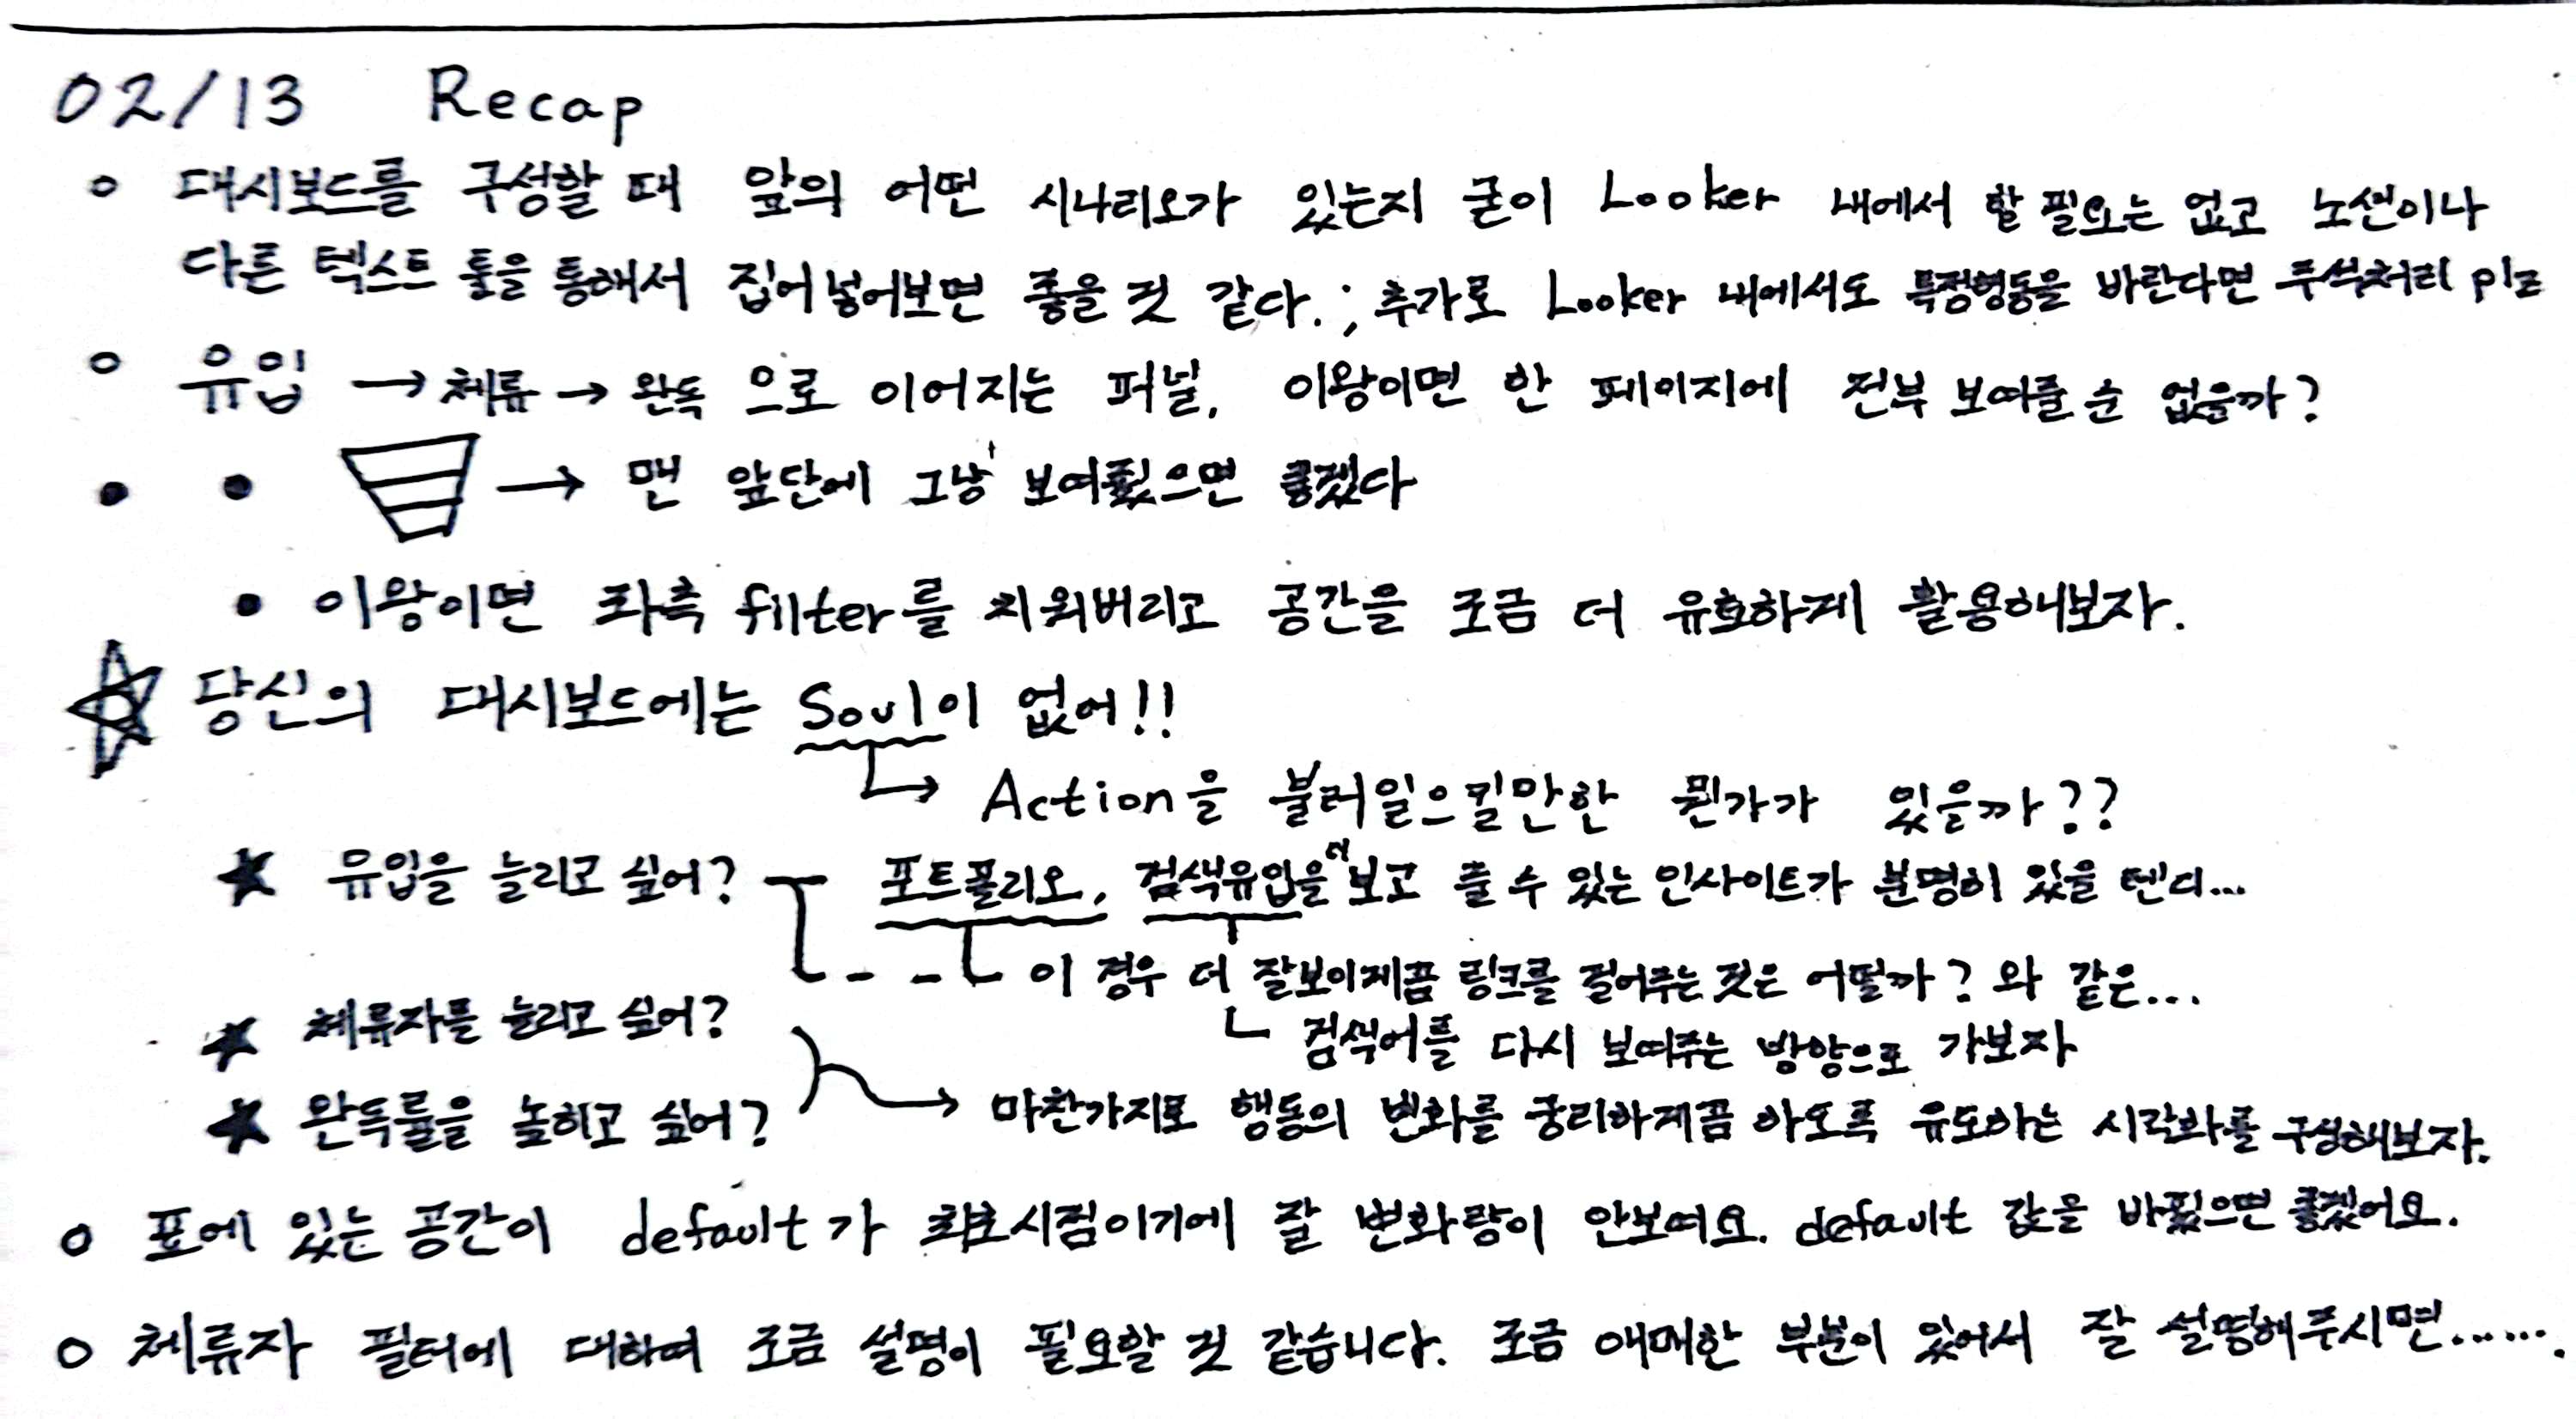 02/13 Recap
대시보드를 구성할 때 앞의 어떤 시나리오가 있는지 굳이 Looker 내에서 할 필요는 없고 노션이나
다른 텍스트 툴을 통해서 집어넣어보면 좋을 것 같다. ; 추가로 Looker 내에서도 특정행동을 바란다면 주석처리 plz
유입 → 체류 → 완독 으로 이어지는 퍼널, 이왕이면 한 페이지에 전부 보여줄 순 없을까?
→ 맨 앞단에 그냥 보여줬으면 좋겠다
이왕이면 좌측 filter를 치워버리고 공간을 조금 더 유효하게 활용해보자.
당신의 대시보드에는 Soul이 없어!!
→ Action을 불러일으킬만한 뭔가가 있을까??
유입을 늘리고 싶어? 포트폴리오, 검색유입을 더 보고 줄 수 있는 인사이트가 분명히 있을 텐디...
이 경우 더 잘보이게끔 링크를 걸어주는 것은 어떨까? 와 같은...
체류자를 늘리고 싶어?
검색어를 다시 보여주는 방향으로 가보자
완독률을 높히고 싶어? → 마찬가지로 행동의 변화를 궁리하게끔 하도록 유도하는 시각화를 구성해보자.
표에 있는 공간이 default가 최초시점이기에 잘 변화량이 안보여요. default 값을 바꿨으면 좋겠어요.
체류자 필터에 대하여 조금 설명이 필요할 것 같습니다. 조금 애매한 부분이 있어서 잘 설명해주시면.......